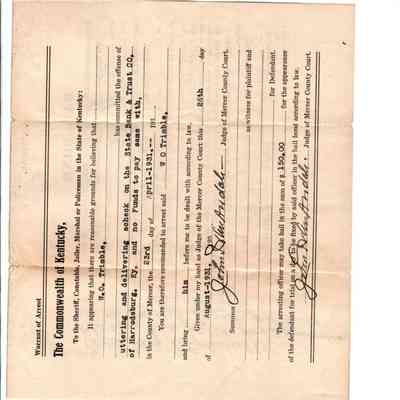 Warrant of Arrest
The Commonwealth of Kentucky,
To the Sheriff, Constable, Jailer, Marshal or Policeman in the State of Kentucky:
It appearing that there are reasonable grounds for believing that
W.O. Trimble,
has committed the offense of
uttering and delivering acheck on the State Bank & Trust CO,
of Harrodsburg, Ky, and no Funds to pay same with,
in the County of Mercer, the 23rd day of April-1931.-- 19
You are therefore commanded to arrest said W O Trimble,
and bring him before me to be dealt with according to law.
Given under my hand as Judge of the Mercer County Court this 25th day
of August-1931
Judge of Mercer County Court.
Summons as witness for plaintiff and
for Defendant.
The arresting officer may take bail in the sum of $150,00 for the appearance
of the defendant for trial on a to be fixed by said officer in the bail bond according to law.
Judge of Mercer County Court.